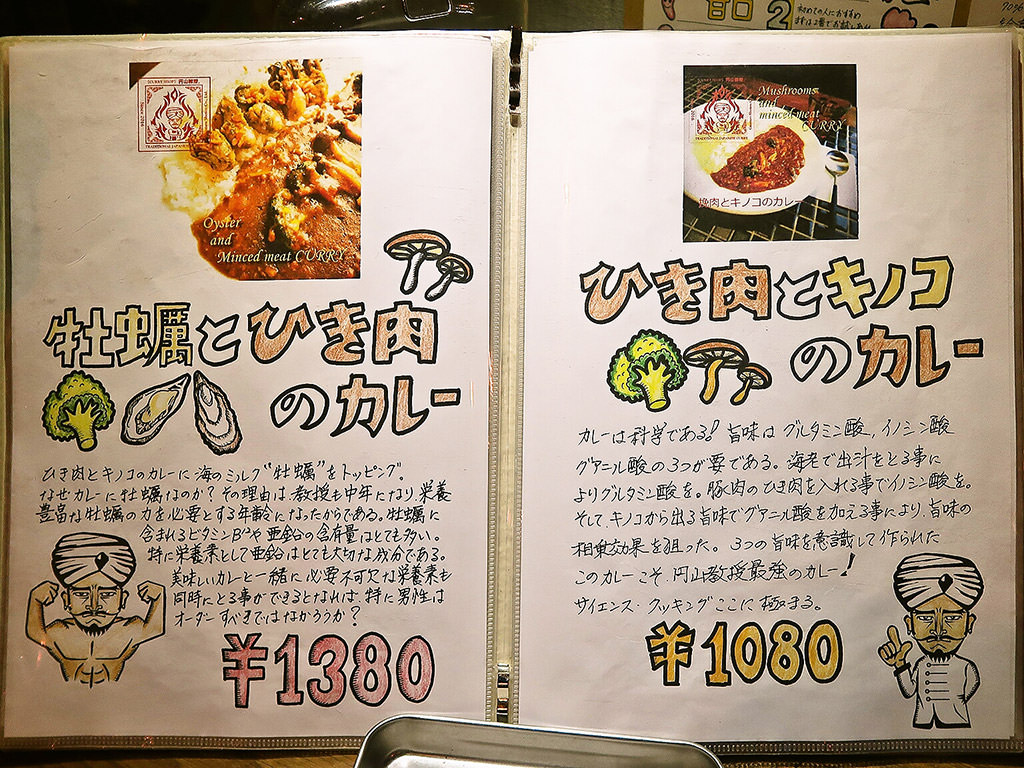 甘口 2
初めての人におすすめ
CURRY SHOP 円山教授.
Since 2004
TRADITIONAL JAPANESE CURRY
Oyster
and
Minced meat CURRY
牡蠣とひき肉
のカレー
ひき肉とキノコのカレーに海のミルク"牡蠣"をトッピング。
なぜカレーに牡蠣なのか?その理由は、教授も中年になり、栄養
豊富な牡蠣の力を必要とする年齢になったからである。牡蠣に
含まれるビタミンB¹²や亜鉛の含有量はとても多い。
特に栄養素として亜鉛はとても大切な成分である。
美味しいカレーと一緒に必要不可欠な栄養素も
同時にとる事ができるとなれば、特に男性は
オーダーすべきではなかろうか?
¥1380
CURRY SHOP 円山教授.
TRADITIONAL JAPANESE CURRY
Mushrooms
and
minced meat
CURRY
挽肉とキノコのカレー
ひき肉とキノコ
のカレー
カレーは科学である!旨味はグルタミン酸,イノシン酸
グアニル酸の3つが要である。海老で出汁をとる事に
よりグルタミン酸を。豚肉のひき肉を入れる事でイノシン酸を。
そして、キノコから出る旨味でグアニル酸を加える事により、旨味の
相乗効果を狙った。3つの旨味を意識して作られた
このカレーこそ、円山教授最強のカレー!
サイエンス・クッキングここに極まる。
¥1080